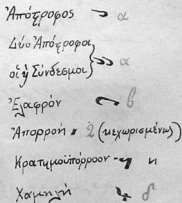 Ἀπόστροφος α
Δύο Ἀπόστροφοι
οἱ ἢ Σύνδεσμοι α
Ἐλαφρόν β
Ἀπορροή 2 (κεχωρισμένως)
Κρατημοϋπόρροον
Χαμηλή δ